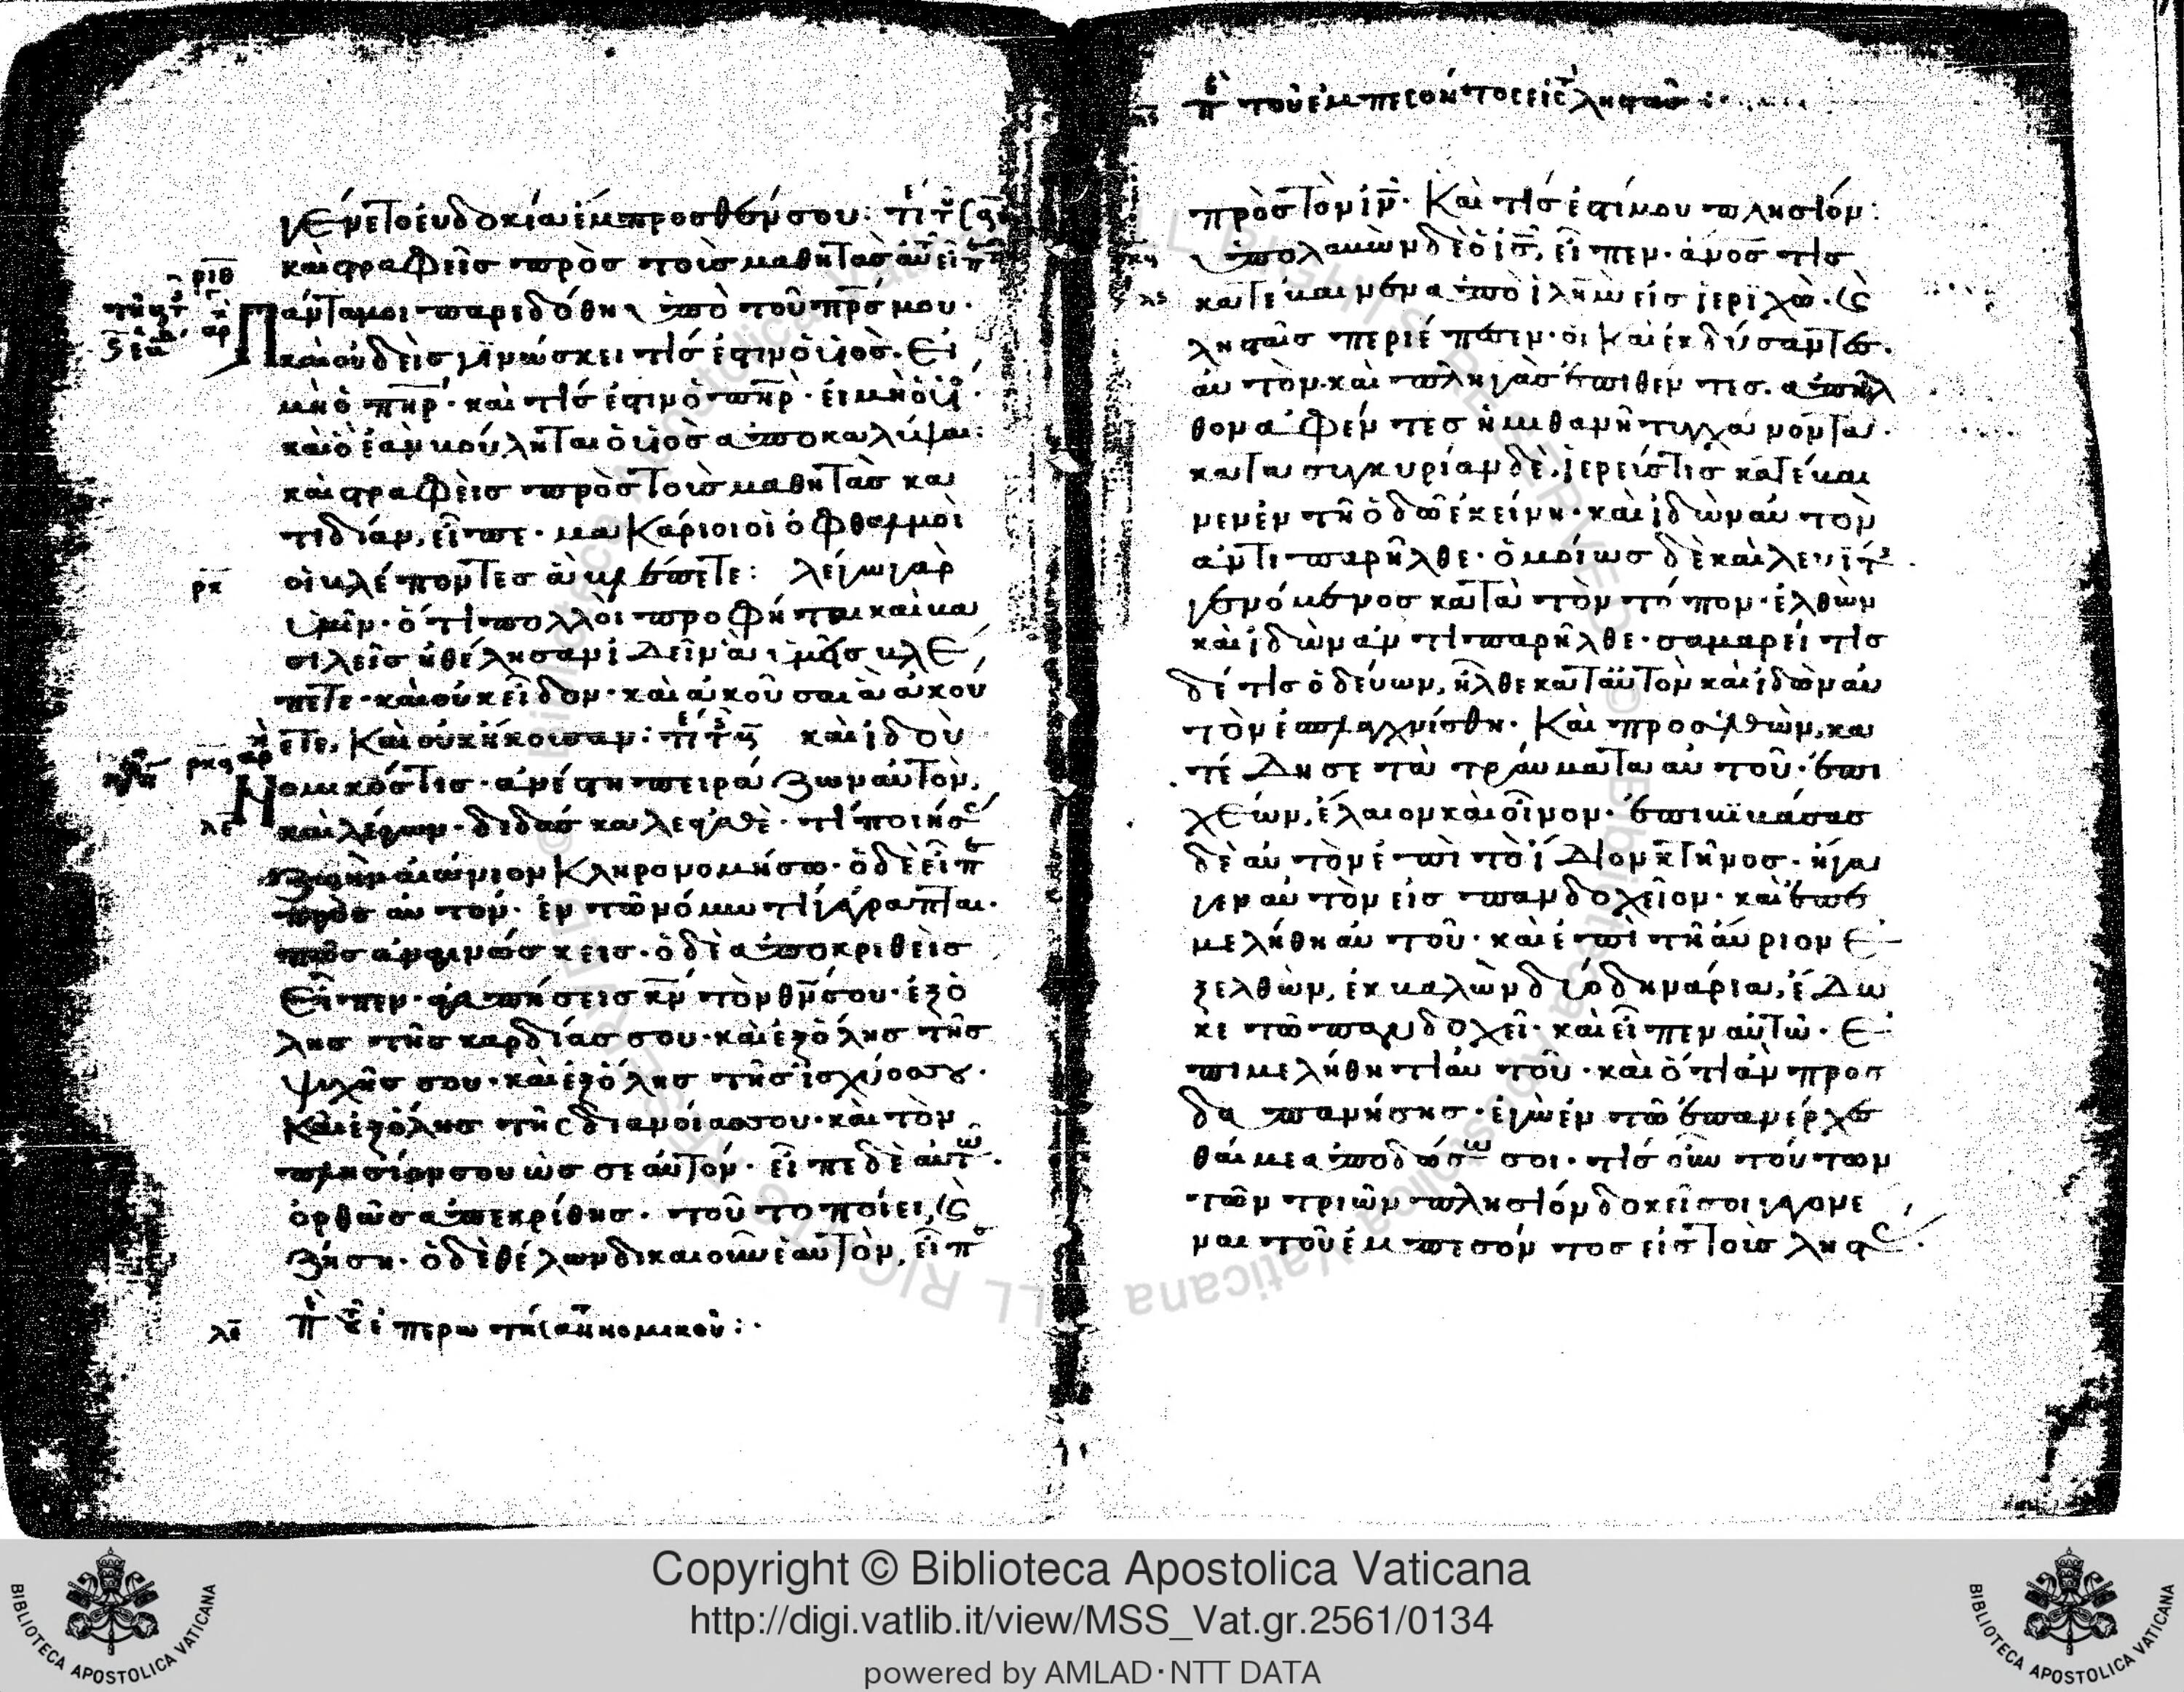 γένετο εὐδοκία ἔμπροσθέν σου:
καὶ στραφεὶς πρὸς τοὺς μαθητὰς αὐτοῦ εἶπ
ριθ
Πάντα μοι παρεδόθη ὑπὸ τοῦ πρς μου·
καὶ οὐδεὶς γινώσκει τίς ἐστιν ὁ υἱὸς· εἰ
μὴ ὁ πηρ· καὶ τίς ἐστιν ὁ πηρ· εἰ μὴ ὁ υἱ
καὶ ὁ ἐὰν βούληται ὁ υἱὸς ἀποκαλύψαι:
καὶ στραφεὶς πρὸς τοὺς μαθητὰς κα
τιδίαν, εἶπε· μακάριοι οἱ ὀφθαλμοὶ
ρκ
οἱ βλέποντες ἃ βλέπετε: λέγω γὰρ
ὑμῖν· ὅτι πολλοὶ προφῆται καὶ βα
σιλεῖς ἠθέλησαν ἰδεῖν ἃ ὑμεῖς βλέ
πετε· καὶ οὐκ εἶδον· καὶ ἀκοῦσαι ἃ ἀκού
ετε, καὶ οὐκ ἤκουσαν: καὶ ἰδοὺ
ρκα αρ
Νομικός τις· ἀνέστη πειράζων αὐτὸν,
λε
καὶ λέγων· διδάσκαλε ἀγαθὲ· τί ποιήσ
ζωὴν αἰώνιον κληρονομήσω· ὁ δὲ εἶπ
πρὸς αὐτόν· ἐν τῷ νόμω τί γέγραπται·
πῶς ἀναγινώσκεις· ὁ δὲ ἀποκριθεὶς
εἶπεν· ἀγαπήσεις κν τὸν θν σου· ἐξ ὁ
λης τῆς καρδίας σου· καὶ ἐξ ὅλης τῆς
ψυχῆς σου· καὶ ἐξ ὅλης τῆς ἰσχύος σου·
καὶ ἐξ ὅλης τῆς διανοίας σου· καὶ τὸν
πλησίον σου ὡς σεαυτόν· εἶπε δὲ αὐτῶ·
ὀρθῶς ἀπεκρίθης· τοῦτο ποίει, κ
ζήση· ὁ δὲ θέλων δικαιοῦν ἑαυτὸν, εἶπ
λε πε ἐπερωτήσαν νομικοῦ:·
πε τοῦ ἐμπεσόντος εἰς λησταῖς
πρὸς τὸν ιν· Καὶ τίς ἐστί μου πλησίον:
ὑπολαβὼν δὲ ὁ ις, εἶπεν· ἄνος τίς
λς
κατέβαινεν ἀπὸ ιλημ εἰς ἱεριχὼ· κ
λησταῖς περιέπεσεν· οἱ καὶ ἐκδύσαντες·
αὐτὸν· καὶ πληγὰς ἐπιθέντες· ἀπῆλ
θον ἀφέντες ἡμιθανῆ τυγχάνοντα·
κατα συγκυρίαν δὲ, ἱερεύς τις κατέβαι
νεν ἐν τῆ ὁδῶ ἐκείνη· καὶ ἰδὼν αὐτὸν
ἀντιπαρῆλθε· ὁμοίως δὲ καὶ λευίτης
γενόμενος κατὰ τὸν τόπον· ἐλθὼν
καὶ ἰδὼν ἀντιπαρῆλθε· σαμαρείτις
δέ τις ὁδεύων, ἦλθε κατ αὐτὸν καὶ ἰδὼν αὐ
τὸν ἐσπλαγχνίσθη· Καὶ προσελθὼν, κα
τέδησε τὰ τραύματα αὐτοῦ· ἐπι
χέων, ἔλαιον καὶ οἶνον· ἐπιβιβάσας
δὲ αὐτὸν ἐπὶ τὸ ἴδιον κτῆνος· ἤγα
γεν αὐτὸν εἰς πανδοχεῖον· καὶ ἐπε
μελήθη αὐτοῦ· καὶ ἐπὶ τὴν αὔριον ἐ
ξελθὼν, ἐκβαλὼν δύο δηνάρια, ἔδω
κε τῶ πανδοχεῖ· καὶ εἶπεν αὐτῶ· ἐ
πιμελήθητι αὐτοῦ· καὶ ὅτι ἂν προσ
δαπανήσης· ἐγὼ ἐν τῶ ἐπανέρχεσ
θαί με ἀποδώσω σοι· τίς οὖν τούτων
τῶν τριῶν πλησίον δοκεῖ σοι γεγονέ
ναι τοῦ ἐμπεσόντος εἰς τοὺς ληστ
Copyright © Biblioteca Apostolica Vaticana
http://digi.vatlib.it/view/MSS_Vat.gr.2561/0134
powered by AMLAD·NTT DATA
BIBLIOTECA APOSTOLICA VATICANA
BIBLIOTECA APOSTOLICA VATICANA